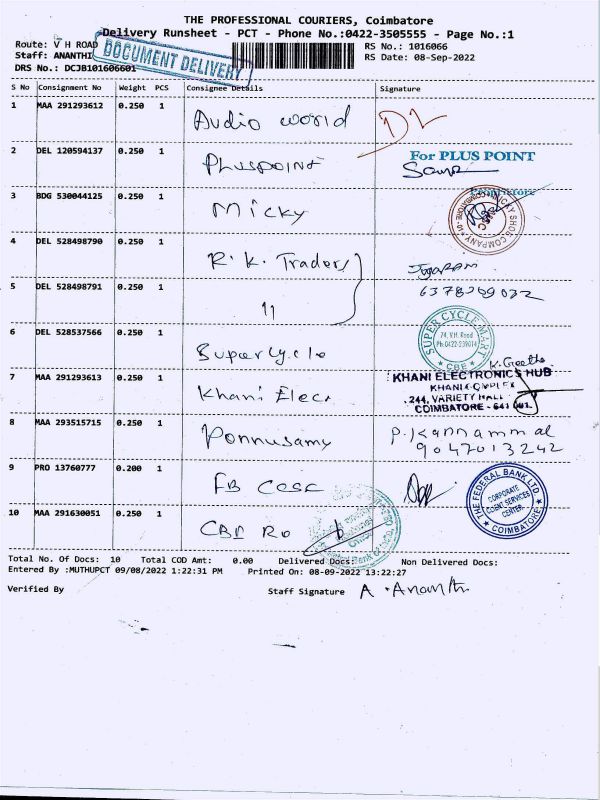 THE PROFESSIONAL COURIERS, Coimbatore
Delivery Runsheet - PCT - Phone No.:0422-3505555 - Page No.:1
Route: V H ROAD
RS No.: 1016066
Staff: ANANTHI
RS Date: 08-Sep-2022
DRS No.: DCJB101606601
DOCUMENT DELIVERY
S No Consignment No Weight PCS Consignee Details Signature
1 MAA 291293612 0.250 1 Audio world DL
2 DEL 120594137 0.250 1 Pluspoint For PLUS POINT
3 BDG 530044125 0.250 1 Micky
4 DEL 528498790 0.250 1 R.K. Traders Jogaram
5 DEL 528498791 0.250 1 11
6 DEL 528537566 0.250 1 Supercycle SUPER CYCLE MART
74, V.H. Road
CBE
K. Geetha
7 MAA 291293613 0.250 1 Khani Elecr KHANI ELECTRONICS HUB
KHANI COMPLEX
244, VARIETY HALL
COIMBATORE - 641 001.
8 MAA 293515715 0.250 1 Ponnusamy P. Kannammal
9047013242
9 PRO 13760777 0.200 1 FB CCSC THE FEDERAL BANK LTD.
CORPORATE
CLIENT SERVICES
CENTER
COIMBATORE
10 MAA 291630051 0.250 1 CBE RO
Total No. Of Docs: 10 Total COD Amt: 0.00 Delivered Docs: Non Delivered Docs:
Entered By :MUTHUPCT 09/08/2022 1:22:31 PM Printed On: 08-09-2022 13:22:27
Verified By Staff Signature A. Ananthi